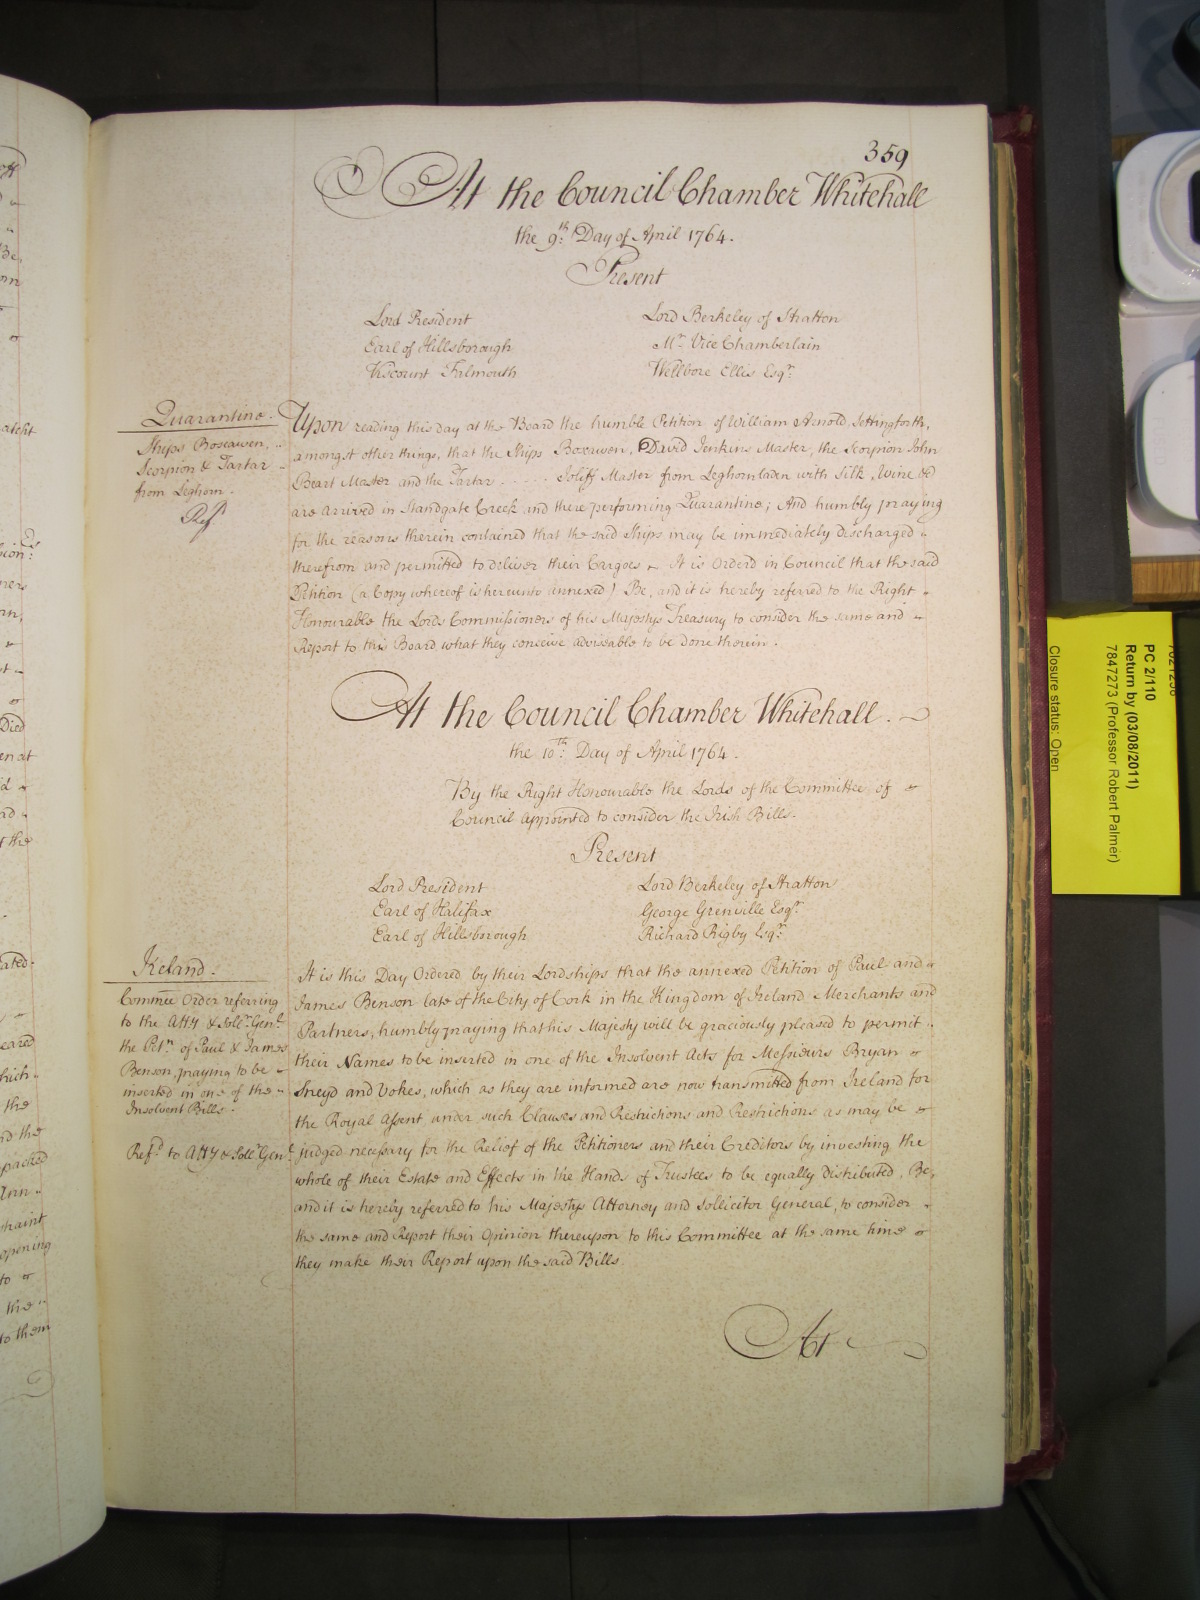 359
At the Council Chamber Whitehall
the 9th Day of April 1764.
Present
Lord President
Earl of Hillsborough
Viscount Falmouth
Lord Berkeley of Stratton
Mr Vice Chamberlain
Wellbore Ellis Esqr
Quarantine.
Ships Boscawen,
Scorpion & Tartar
from Leghorn.
Refd
Upon reading this day at the Board the humble Petition of William Arnold
amongst other things, that the Ships Boscawen, David Jenkins Master, the Scorpion John
Beart Master and the Tartar - - - - - Joliff Master from Leghorn laden with Silk, Wine &c
are arrived in Standgate Creek and there performing Quarantine; And humbly praying
for the reasons therein contained that the said Ships may be immediately discharged
therefrom and permitted to deliver their Cargoes It is Orderd in Council that the said
Petition (a Copy whereof is hereunto annexed) Be, and it is hereby referred to the Right
Honourable the Lords Commissioners of his Majestys Treasury to consider the same and
Report to this Board what they conceive adviseable to be done therein.
At the Council Chamber Whitehall.
the 10th Day of April 1764.
By the Right Honourable the Lords of the Committee of
Council appointed to consider the Irish Bills.
Present
Lord President
Earl of Halifax
Earl of Hillsborough
Lord Berkeley of Stratton
George Grenville Esqr
Richard Rigby Esqr
Ireland.
Commee Order referring
to the Atty & Sollr Genl
the Petn of Paul & James
Benson, praying to be
inserted in one of the
Insolvent Bills.
Refd to Atty & Sollr Genl
It is this Day Ordered by their Lordships that the annexed Petition of Paul and
James Benson late of the City of Cork in the Kingdom of Ireland Merchants and
Partners, humbly praying that his Majesty will be graciously pleased to permit
their Names to be inserted in one of the Insolvent Acts for Messieurs Bryan
Sneyd and Vokes, which as they are informed are now transmitted from Ireland for
the Royal Assent under such Clauses and Restrictions and Restrictions as may be
judged necessary for the Relief of the Petitioners and their Creditors by investing the
whole of their Estate and Effects in the Hands of Trustees to be equally distributed, Be,
and it is hereby referred to his Majestys Attorney and Sollicitor General, to consider
the same and Report their Opinion thereupon to this Committee at the same time
they make their Report upon the said Bills.
At
PC 2/110
Return by (03/08/2011)
7847273 (Professor Robert Palmer)
Closure status: Open